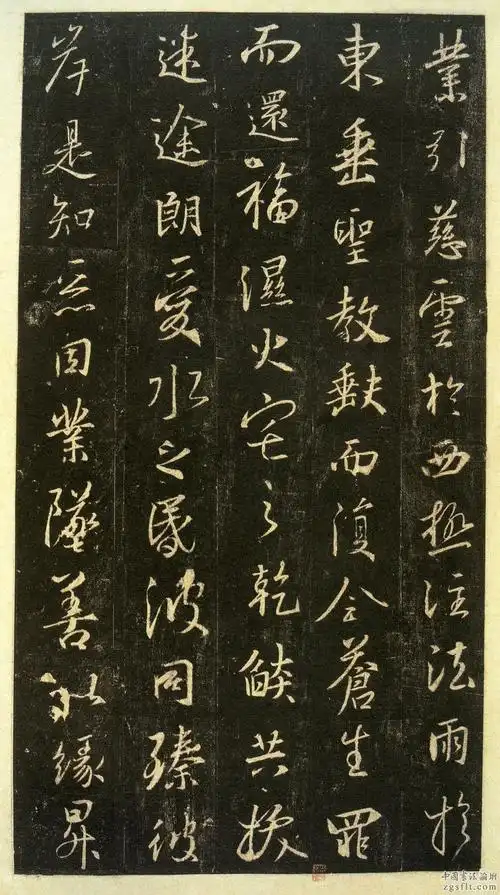 業引慈雲於西極注法雨於
東垂聖教缺而復全蒼生罪
而還福濕火宅之乾燄共拔
迷途朗愛水之昬波同臻彼
岸是知惡因業墜善以緣昇
中國書法論壇
zgsflt.com